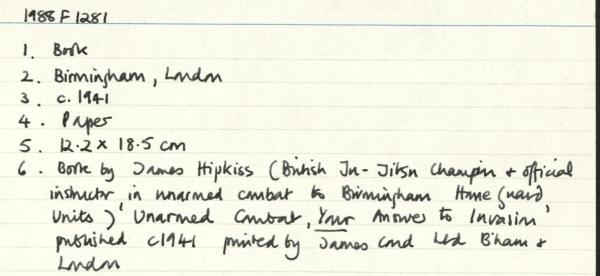 1988 F 1281
1. Book
2. Birmingham, London
3. c. 1941
4. Paper
5. 12.2 x 18.5 cm
6. Book by James Hipkiss (British Ju-Jitsu Champion + official
instructor in unarmed combat to Birmingham Home Guard
Units) 'Unarmed Combat, Your Answer to Invasion'
published c1941 printed by James Cond Ltd B'ham +
London